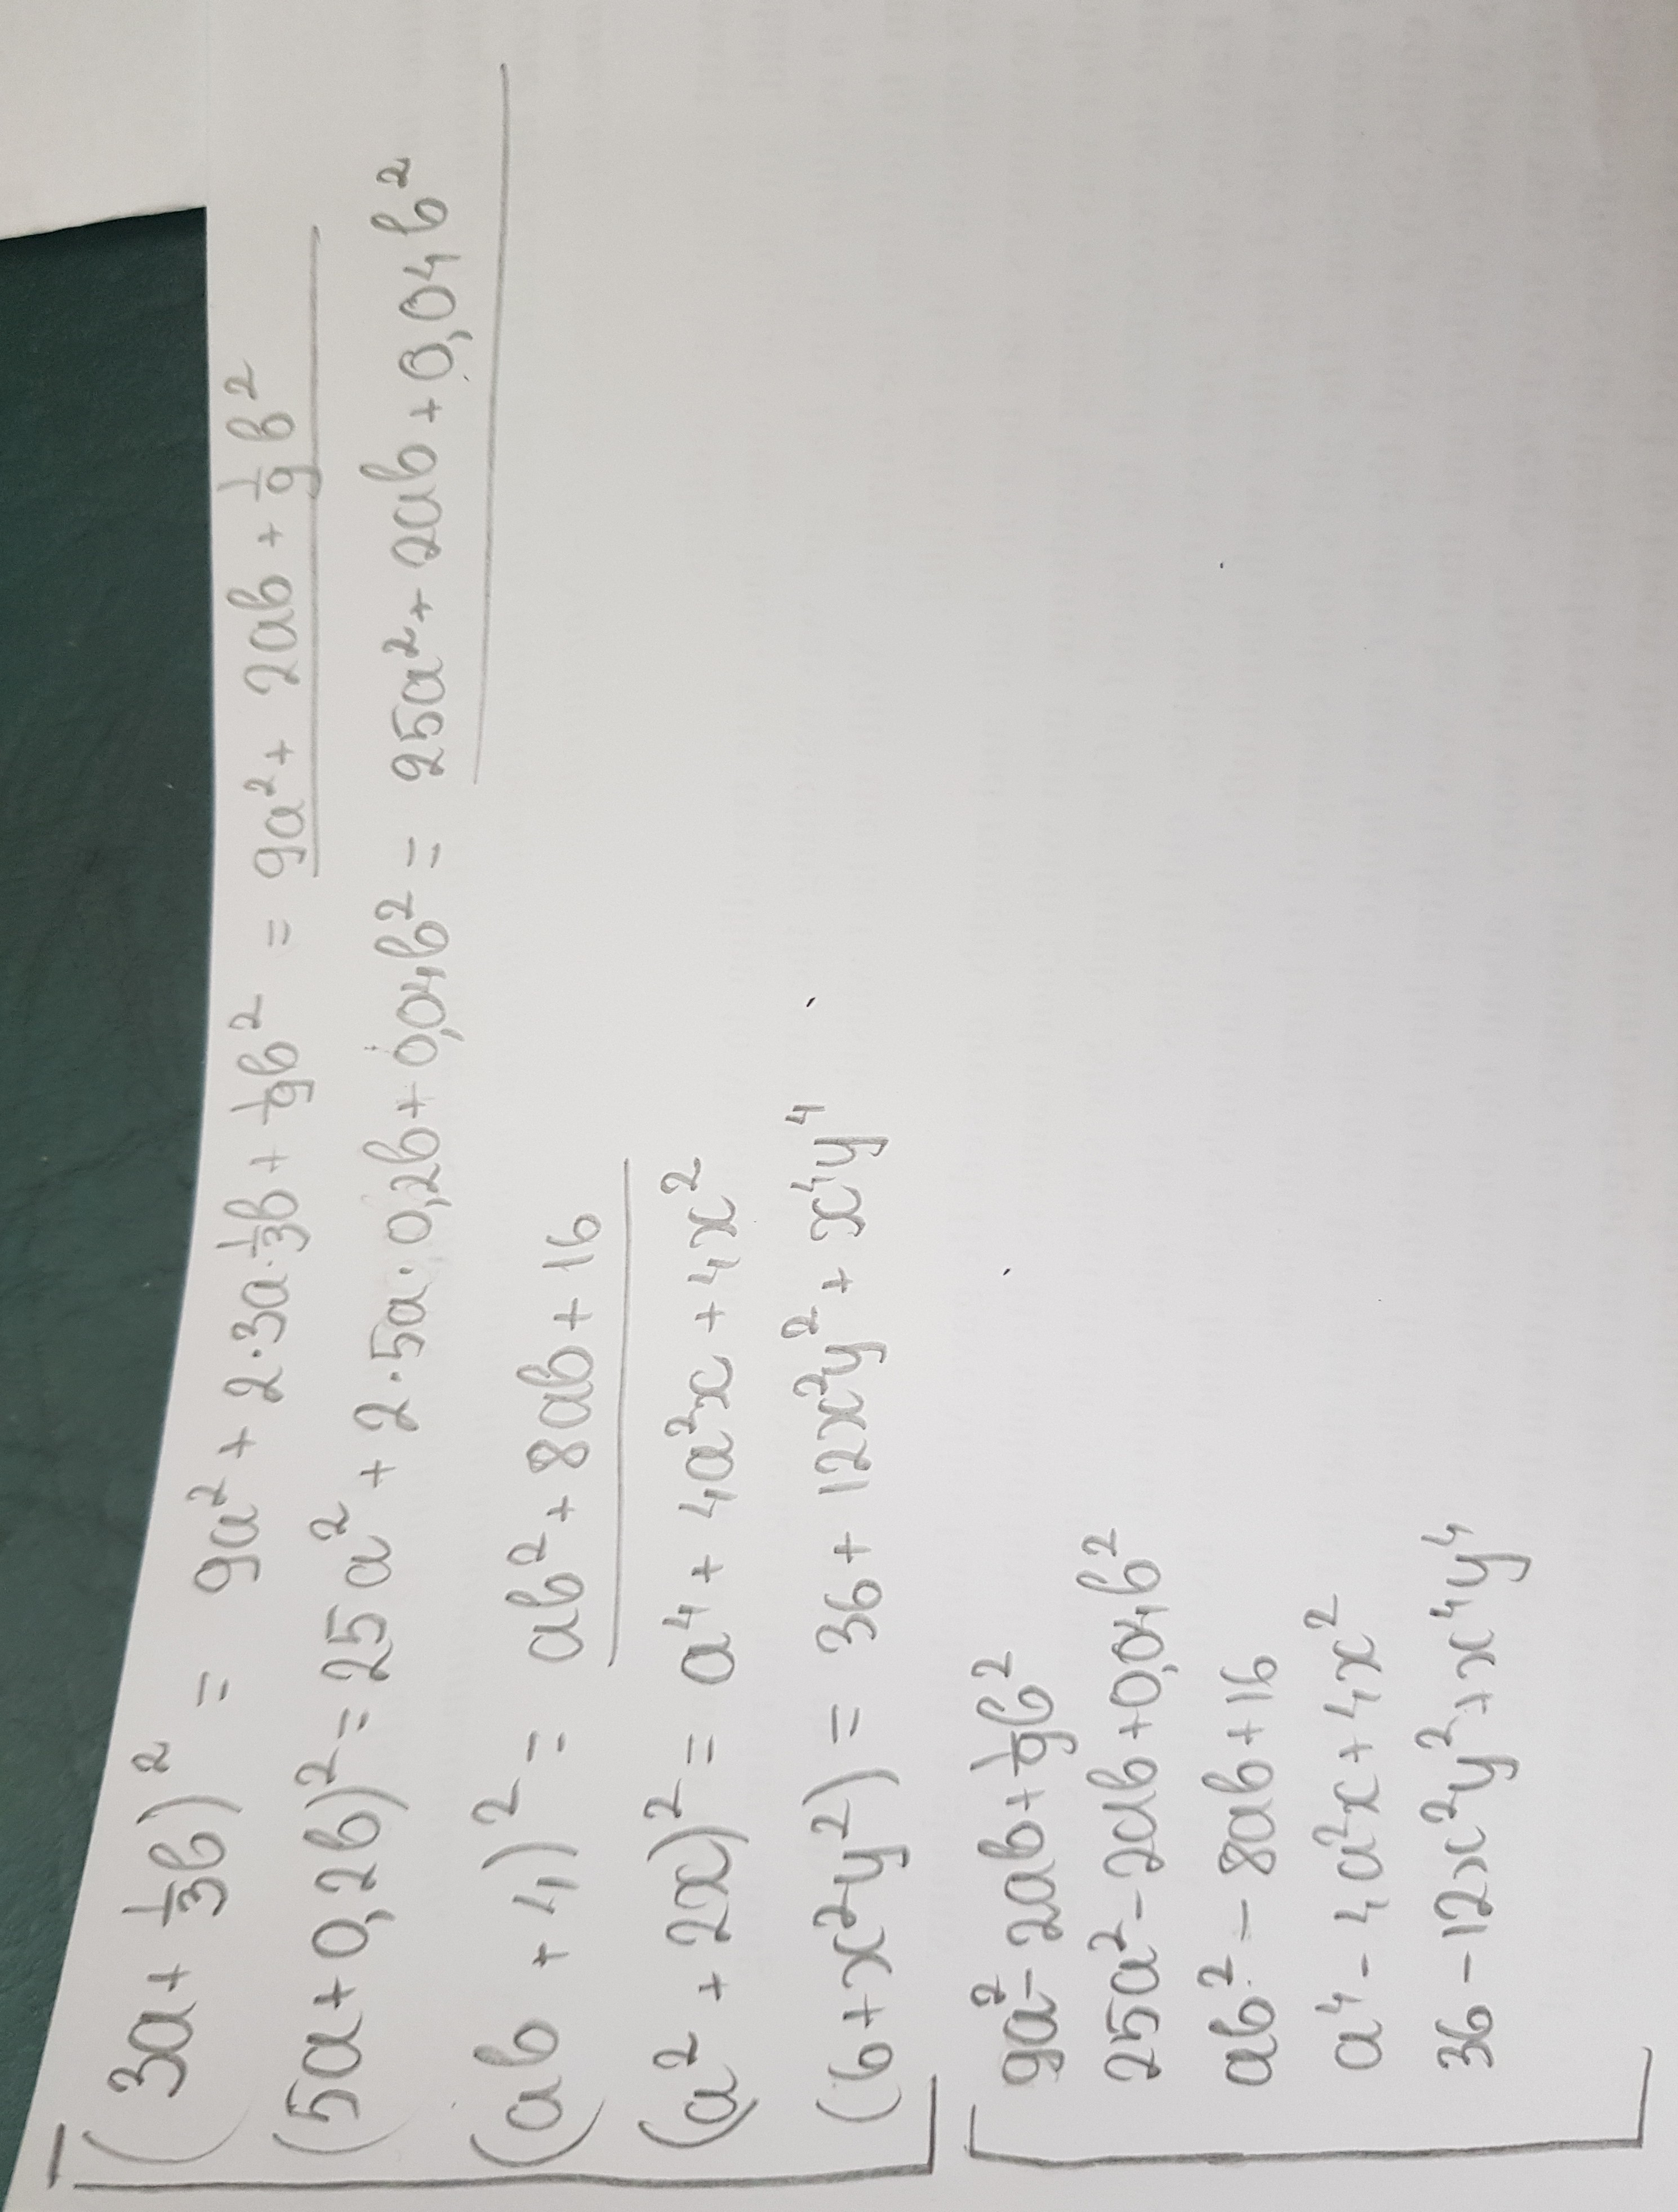 (3a+⅓b)² = 9a² + 2·3a·⅓b + 1/9b² = 9a² + 2ab + 1/9b²
(5a+0,2b)² = 25a² + 2·5a·0,2b + 0,04b² = 25a² + 2ab + 0,04b²
(ab + 4)² = ab² + 8ab + 16
(a² + 2x)² = a⁴ + 4a²x + 4x²
(6+x²y²) = 36 + 12x²y² + x⁴y⁴
9a² - 2ab + 1/9b²
25a² - 2ab + 0,04b²
ab² - 8ab + 16
a⁴ - 4a²x + 4x²
36 - 12x²y² + x⁴y⁴